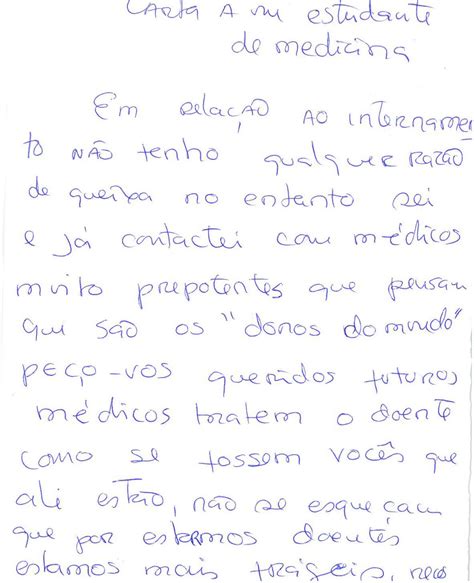 Carta a um estudante
de medicina
Em relação ao internamen
to não tenho qualquer razão
de queixa no entanto sei
e já contactei com médicos
muito prepotentes que pensam
que são os "donos do mundo"
peço-vos queridos futuros
médicos tratem o doente
como se fossem vocês que
ali estão, não se esqueçam
que por estarmos doentes
estamos mais frágeis,